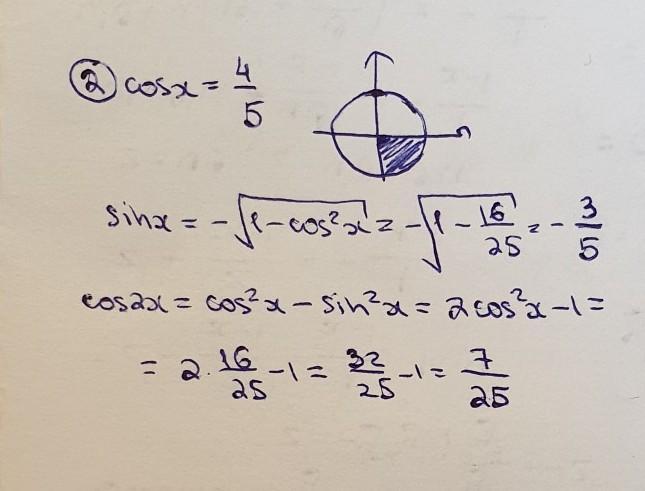 ② cosx = 4/5
sinx = -√(1-cos²x) = -√(1-16/25) = -3/5
cos2x = cos²x - sin²x = 2cos²x - 1 =
= 2·16/25 - 1 = 32/25 - 1 = 7/25